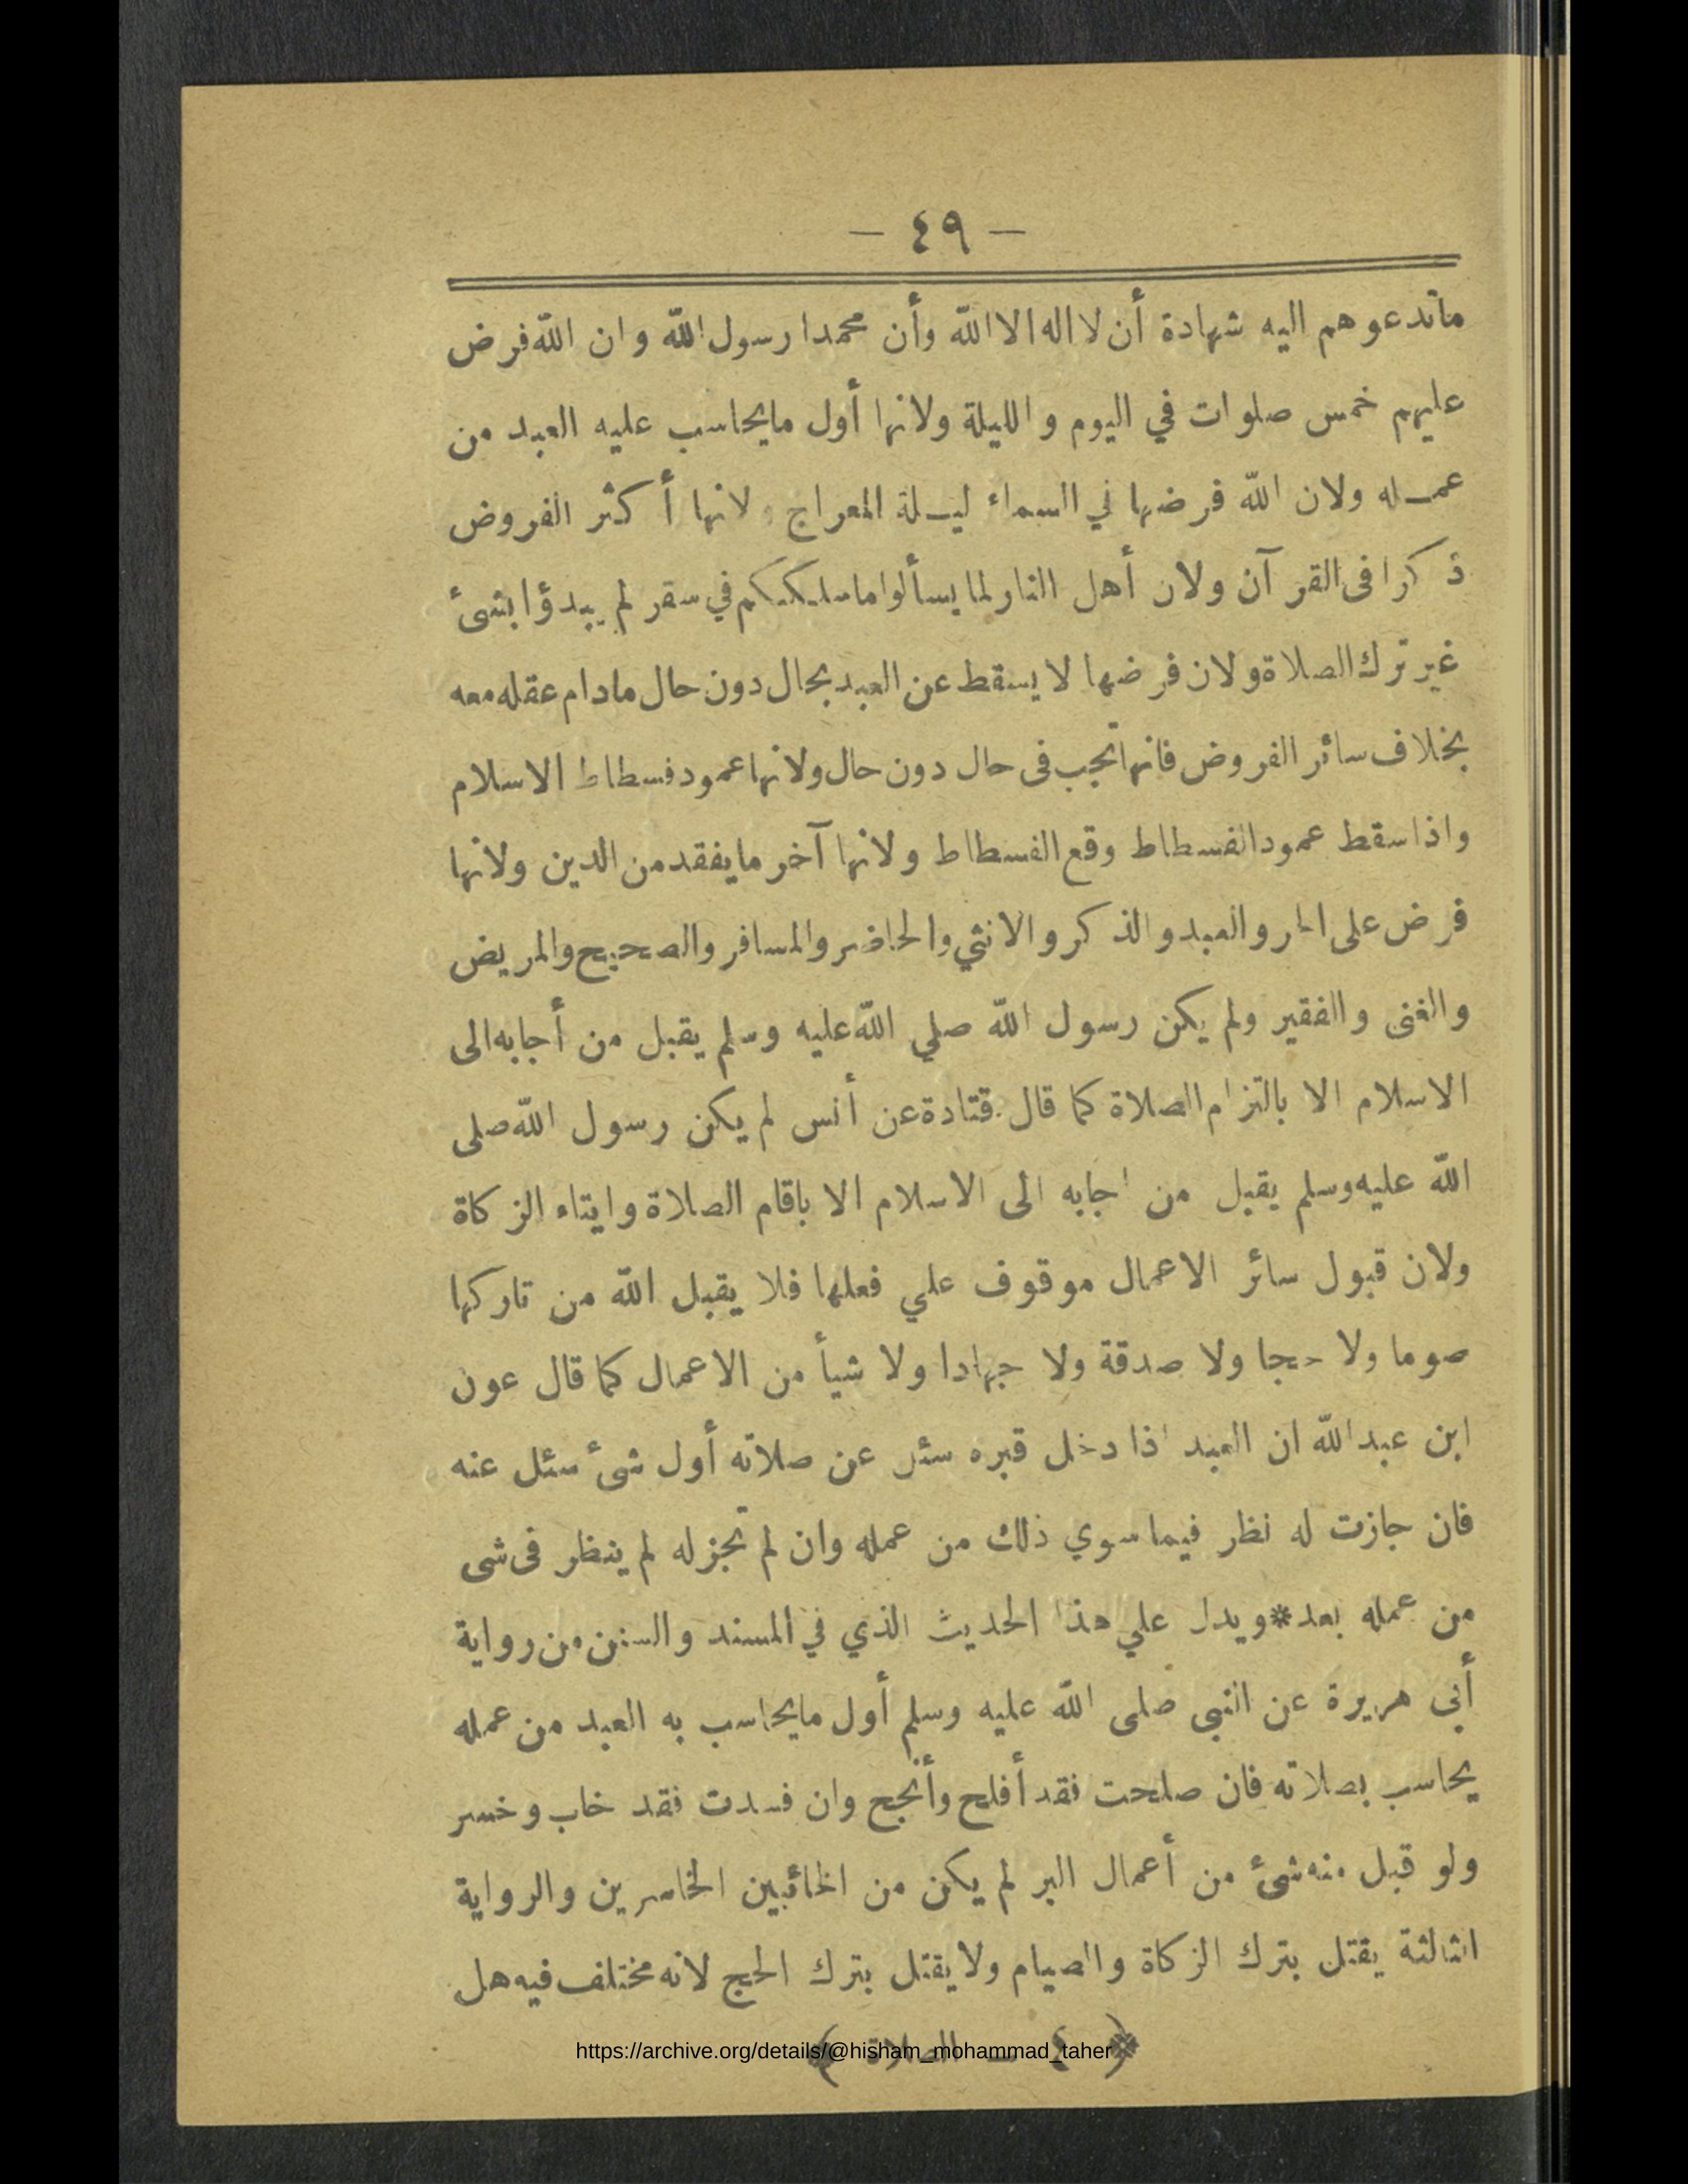 — ٤٩ —
ماتدعوهم اليه شهادة أن لا اله الا الله وأن محمدا رسول الله وان الله فرض
عليهم خمس صلوات في اليوم والليلة ولانها أول مايحاسب عليه العبد من
عمله ولان الله فرضها في السماء ليلة المعراج ولانها أكثر الفروض
ذكرا فى القرآن ولان أهل النار لما يسألوا ماسلككم في سقر لم يبدؤا بشئ
غير ترك الصلاة ولان فرضها لا يسقط عن العبد بحال دون حال مادام عقله معه
بخلاف سائر الفروض فانها تجب فى حال دون حال ولانها عمود فسطاط الاسلام
واذا سقط عمود الفسطاط وقع الفسطاط ولانها آخر مايفقد من الدين ولانها
فرض على الحر والعبد والذكر والانثي والحاضر والمسافر والصحيح والمريض
والغنى والفقير ولم يكن رسول الله صلي الله عليه وسلم يقبل من أجابه الى
الاسلام الا بالتزام الصلاة كما قال قتادة عن أنس لم يكن رسول الله صلى
الله عليه وسلم يقبل من اجابه الى الاسلام الا باقام الصلاة وايتاء الزكاة
ولان قبول سائر الاعمال موقوف علي فعلها فلا يقبل الله من تاركها
صوما ولا حجا ولا صدقة ولا جهادا ولا شيأ من الاعمال كما قال عون
ابن عبد الله ان العبد اذا دخل قبره سئل عن صلاته أول شئ سئل عنه
فان جازت له نظر فيما سوي ذلك من عمله وان لم تجز له لم ينظر فى شى
من عمله بعد * ويدل علي هذا الحديث الذي في المسند والسنن من رواية
أبي هريرة عن النبى صلى الله عليه وسلم أول مايحاسب به العبد من عمله
يحاسب بصلاته فان صلحت فقد أفلح وأنجح وان فسدت فقد خاب وخسر
ولو قبل منه شئ من أعمال البر لم يكن من الخائبين الخاسرين والرواية
الثالثة يقتل بترك الزكاة والصيام ولا يقتل بترك الحج لانه مختلف فيه هل
﴿ ٤ — الصلاة ﴾
https://archive.org/details/@hisham_mohammad_taher